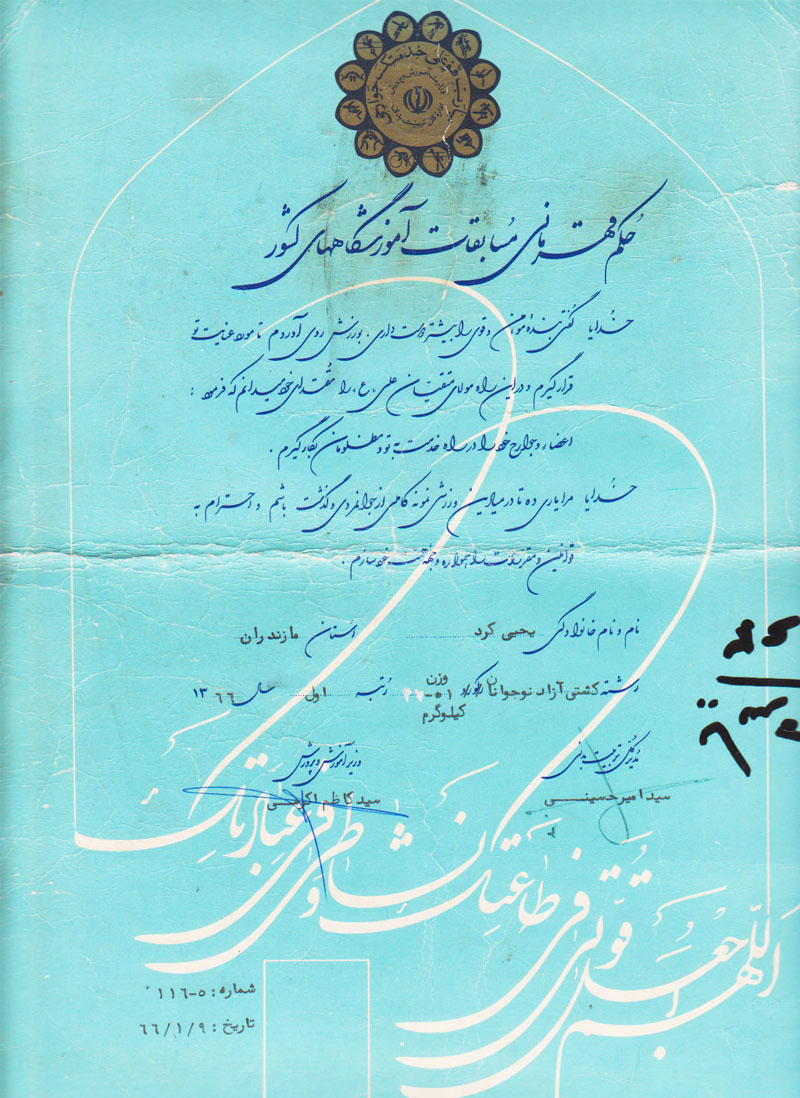 قو علی خدمتک جوارحی
حکم قهرمانی مسابقات آموزشگاههای کشور
خدایا گفتی بنده مومن و قوی را بیشتر دوست داری. بورزش روی آوردم تا مورد عنایت تو
قرار گیرم و در این راه مولای متقیان علی «ع» را مقتدای خود میدانم که فرمود :
اعضاء و جوارح خود را در راه خدمت به تو و مظلومان بکار گیرم .
خدایا مرا یاری ده تا در میادین ورزشی نمونه کاملی از جوانمردی و گذشت باشم و احترام به
قوانین و مقررات را همواره وجهه همت خود سازم .
نام و نام خانوادگی یحیی کرد استان مازندران
رشته کشتی آزاد نوجوانان رکورد وزن ۵۱- کیلوگرم رتبه اول سال ۱۳۶۶
مدیر کل تربیت بدنی وزیر آموزش و پرورش
سید امیر حسینی سید کاظم اکرمی
اللهم اجعل قوتی فی طاعتک و نشاطی فی عبادتک
شماره : ۵-۱۱۶
تاریخ : ۶۶/۱/۹